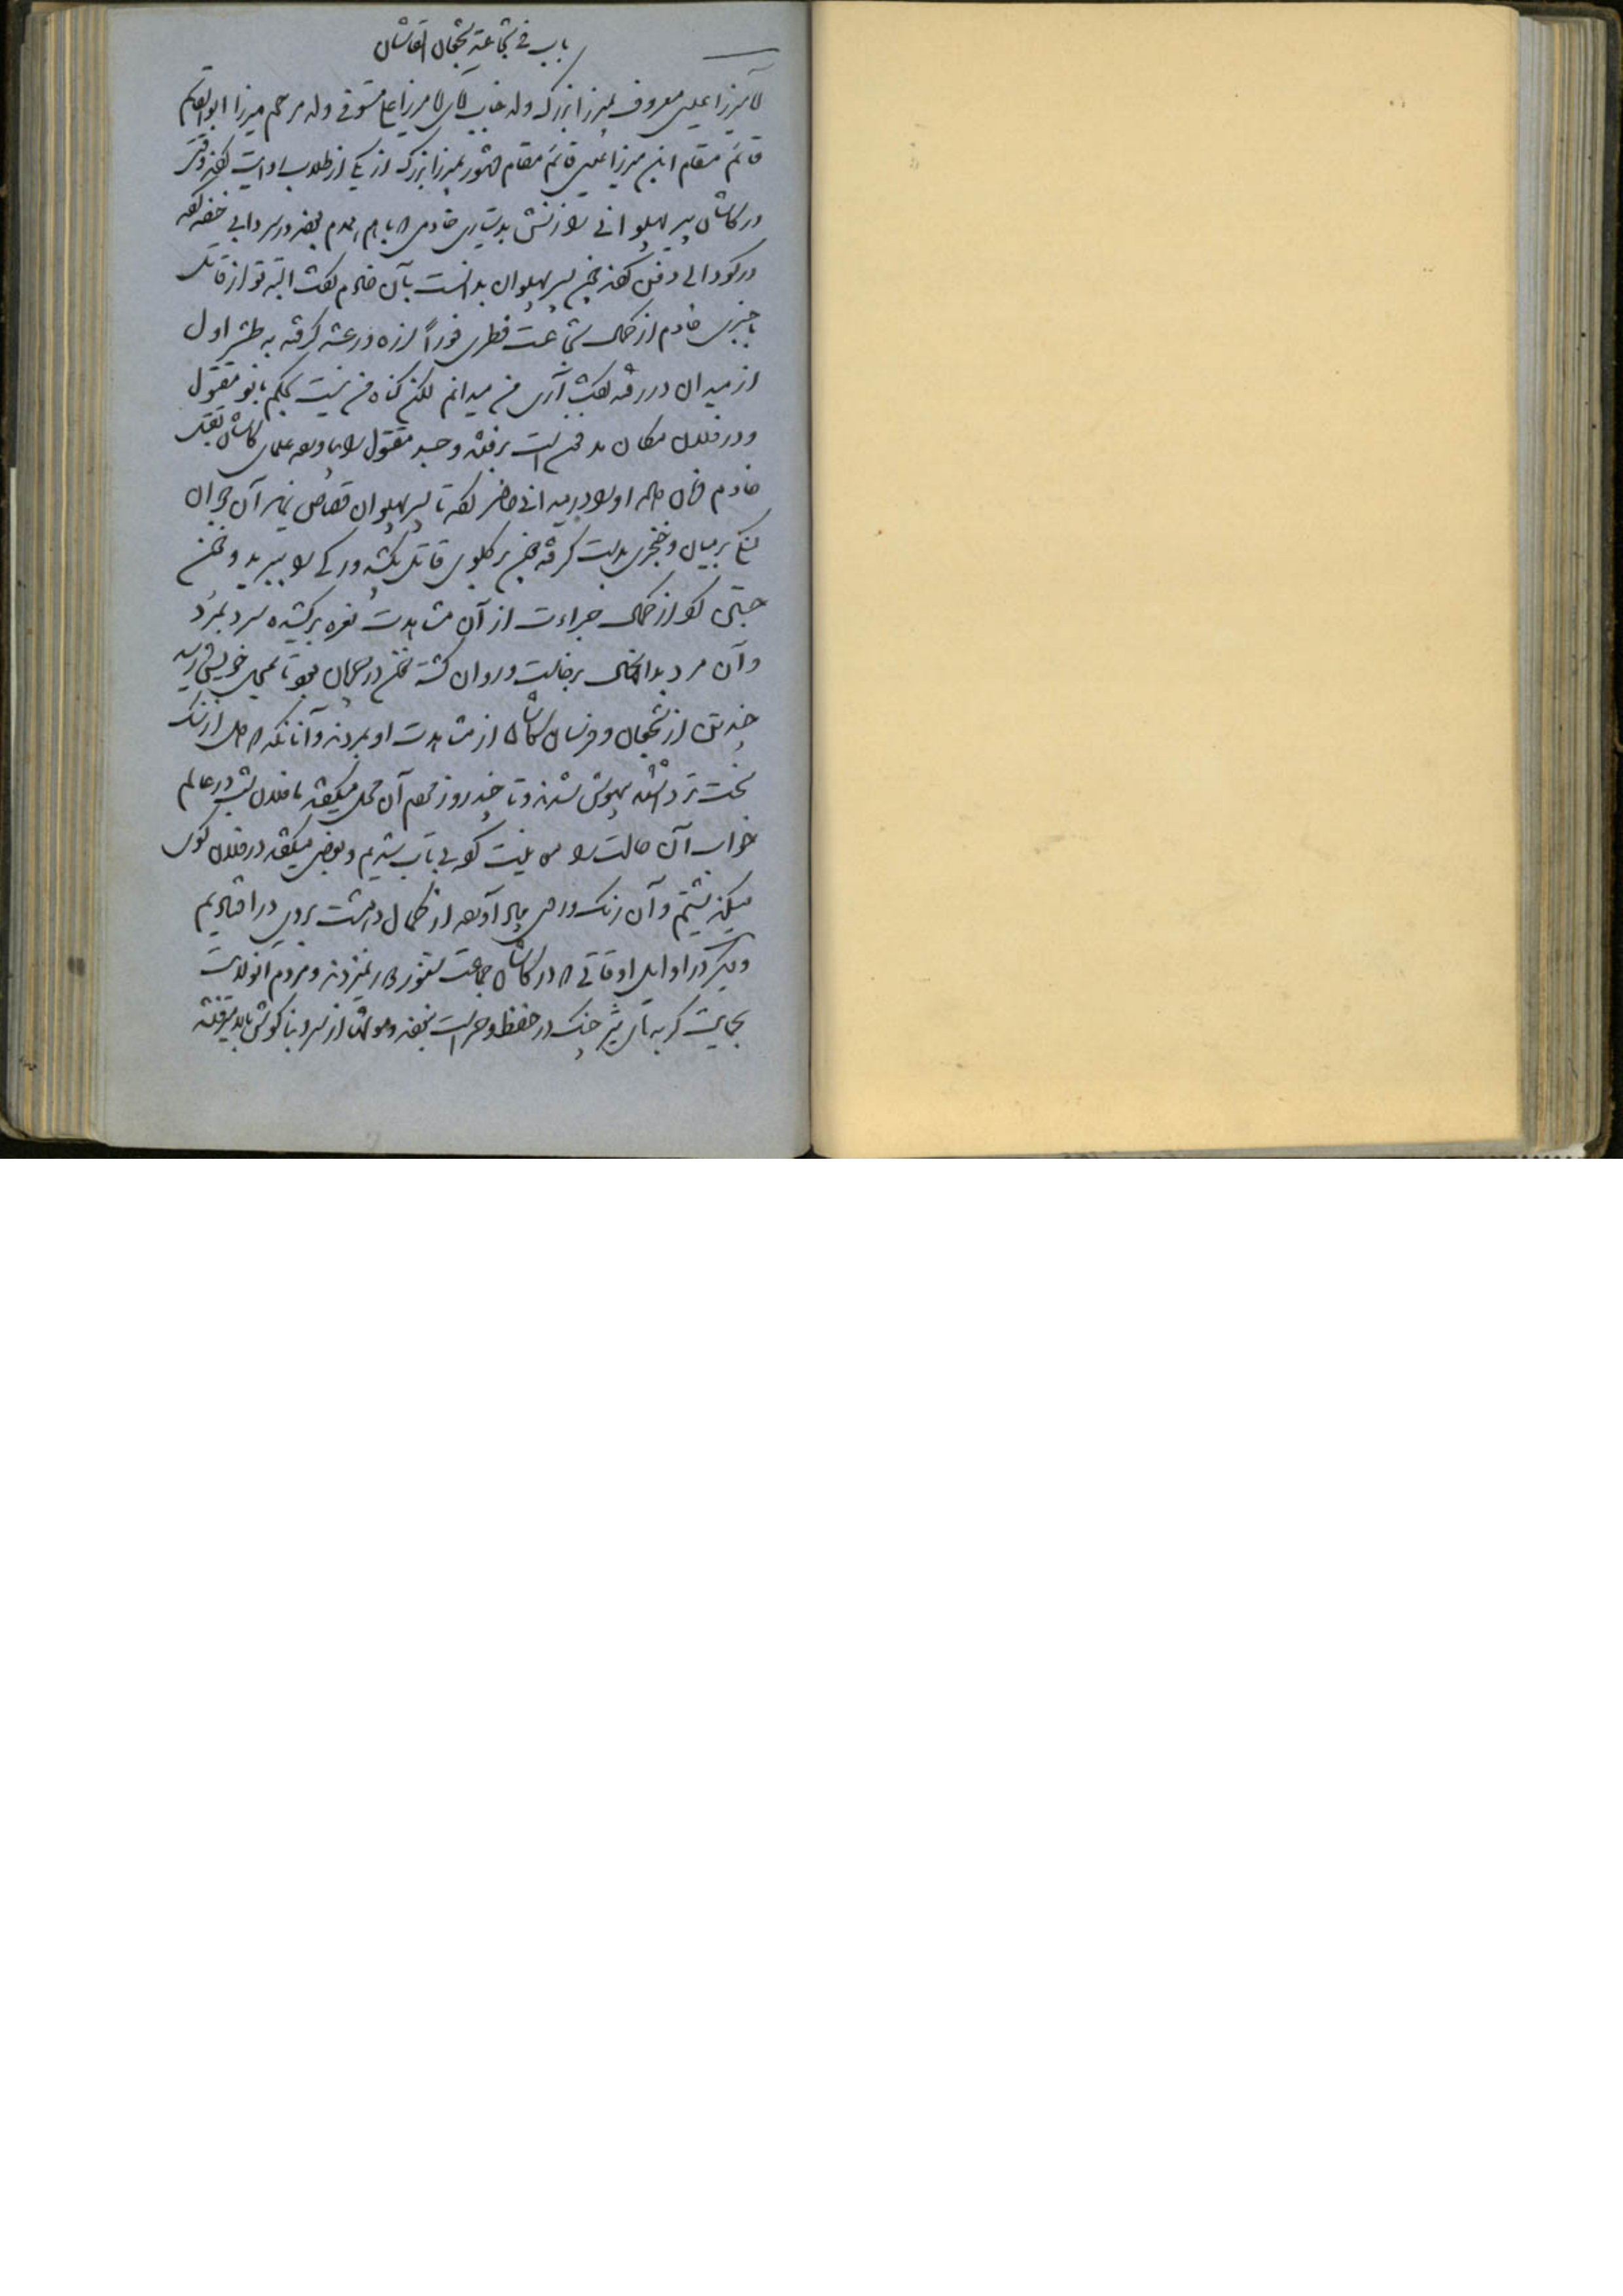 باب فی شجاعة شجعان القاشان
میرزا علی معروف بمیرزا بزرک ولد جناب میرزا علی مستوفی ولد مرحوم میرزا ابوالقاسم
قائم مقام ابن میرزا عیسی قائم مقام مشهور بمیرزا بزرک از یکی از طلاب روایت کند وقتی
در کاشان پیر پهلوانی را زنش بدستیاری خادمی که با هم همدم بودند در سردابی خفه کرده
در کودالی دفن کردند چون پسر پهلوان بدانست بآن خادم گفت البته تو از قاتل
باخبری خادم از کمال شجاعت فطری فوراً لرزه و رعشه گرفته به طشر اول
از میدان در رفته گفت آری من میدانم لکن کناه من نیست بحکم بانو مقتول
و در فلان مکان مدفون است برفتند و جسد مقتول را بیاورده علمای کاشان بقتل
خادم فرمان داده او را در میدانی حاضر کرده تا پسر پهلوان قصاص نماید آن جوان
تنگ بر میان و خنجری بدست گرفته چون بر کلوی قاتل بکشید و رکی را ببرید و خون
جستن کرد از کمال جراءت از آن مشاهدت نعره برکشیده سرد بمرد
و آن مرد بدان حال برخاست و روان کشته خون در جریان بود تا بمحل خویش رسید
چند تن از شجعان و فرسان کاشان از مشاهدت او بمردند و آنانکه دل از سنک
سخت تر داشتند بیهوش شدند و تا چند روز مردم آن محل میکفتند ما فلان شب در عالم
خواب آن حالت را معاینت کرده بی تاب شدیم و بعضی میکفتند در فلان کوی
میکذشتیم و آن رنک و روی بیاد آورده از کمال دهشت بروی در افتادیم
و دیکر در اوایل اوقاتی که در کاشان جماعت هنوز نمیزدند و مردم آنولایت
بحمایت کربه های شیر چنک در حفظ و حراست بودند و موشها از سر و بناکوش بالا میرفتند